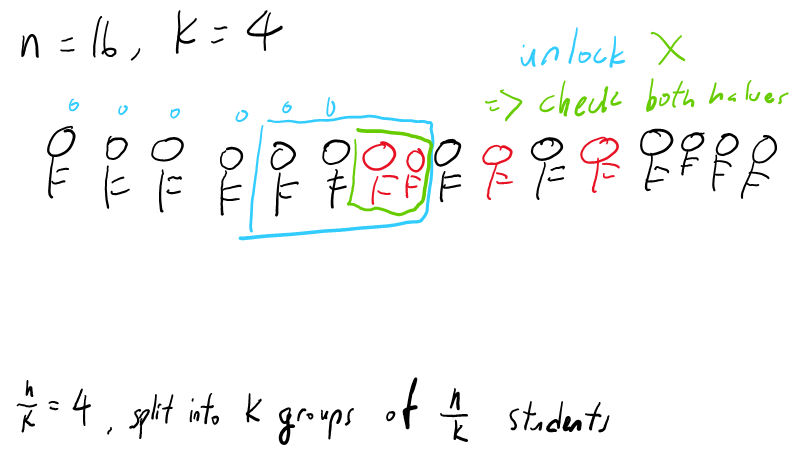 n = 16, k = 4
unlock X
=> check both halves
0 0 0 0 0 0
n/k = 4, split into k groups of n/k students